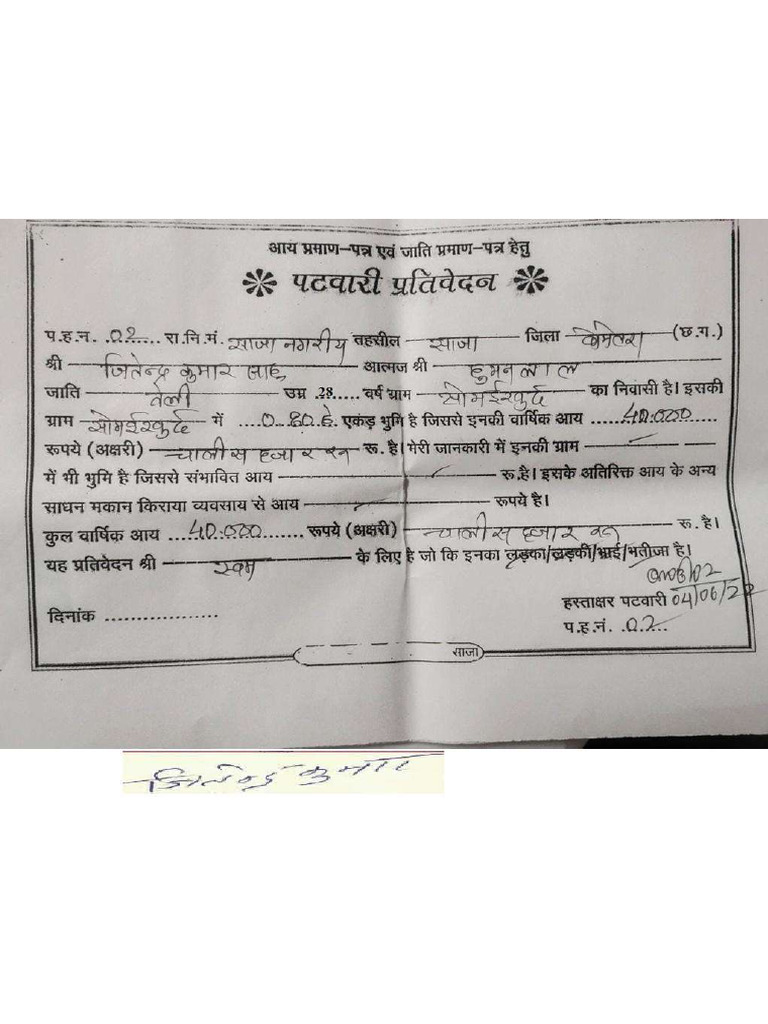 आय प्रमाण-पत्र एवं जाति प्रमाण-पत्र हेतु
पटवारी प्रतिवेदन
प.ह.न. 02 रा.नि.मं. साजा नगरीय तहसील साजा जिला बेमेतरा (छ.ग.)
श्री जितेन्द्र कुमार साहू आत्मज श्री हुमन लाल
जाति तेली उम्र 28 वर्ष ग्राम सोमईखुर्द का निवासी है। इसकी
ग्राम सोमईखुर्द में 0.80 हे. एकड़ भुमि है जिससे इनकी वार्षिक आय 40.000
रूपये (अक्षरी) चालीस हजार रू. है। मेरी जानकारी में इनकी ग्राम
में भी भुमि है जिससे संभावित आय रू.है। इसके अतिरिक्त आय के अन्य
साधन मकान किराया व्यवसाय से आय रूपये है।
कुल वार्षिक आय 40.000 रूपये (अक्षरी) चालीस हजार रू. है।
यह प्रतिवेदन श्री स्वयं के लिए है जो कि इनका लड़का/लड़की/भाई/भतीजा है।
हस्ताक्षर पटवारी 04/06/22
दिनांक
प.ह.नं. 02
साजा
जितेन्द्र कुमार